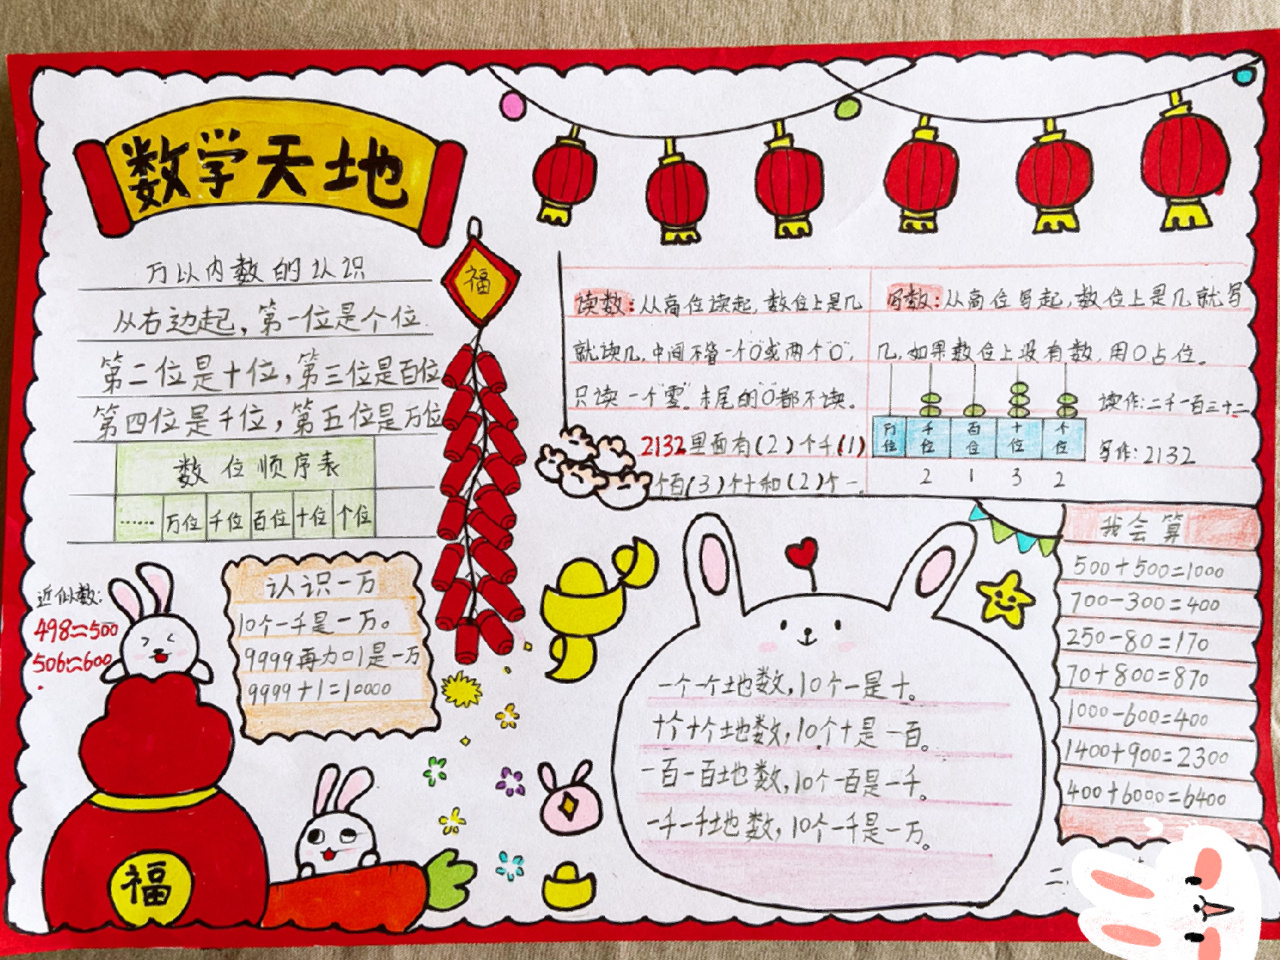 数学天地
万以内数的认识
从右边起，第一位是个位
第二位是十位，第三位是百位
第四位是千位，第五位是万位
数位顺序表
…… 万位 千位 百位 十位 个位
福
读数：从高位读起，数位上是几
就读几，中间不管一个"0"或两个"0"，
只读一个"零"。末尾的"0"都不读。
2132里面有(2)个千(1)
个百(3)个十和(2)个一。
写数：从高位写起，数位上是几就写
几，如果数位上没有数，用0占位。
万位 千位 百位 十位 个位
2 1 3 2
读作：二千一百三十二
写作：2132
近似数：
498≈500
506≈600
认识一万
10个一千是一万。
9999再加1是一万
9999+1=10000
福
一个一个地数，10个一是十。
十个十个地数，10个十是一百。
一百一百地数，10个一百是一千。
一千一千地数，10个一千是一万。
我会算
500+500=1000
700-300=400
250-80=170
70+800=870
1000-600=400
1400+900=2300
400+6000=6400
二